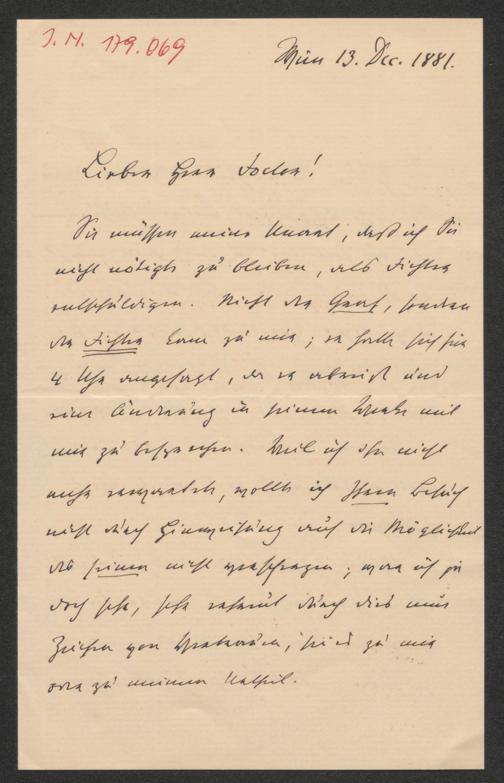 I. N. 179.069
Wien 13. Dec. 1881.
Lieber Herr Doctor!
Sie müssen meine Unart, daß ich Sie
nicht nötigte zu bleiben, als Fichtner
entschuldigen. Nicht der Graf, sondern
der kam zu mir; er hatte sich für
4 Uhr angesagt, da er abreist und
eine Änderung in seinem Werke mit
mir zu besprechen. Weil ich ihn nicht
mehr erwartete, wollte ich Ihren Besuch
nicht durch Hinweisung auf die Möglichkeit
des seinen nicht ; war ich ja
doch sehr, sehr erfreut durch dies neue
Zeichen von Vertrauen, sei es zu mir
oder zu meinem Urtheil.